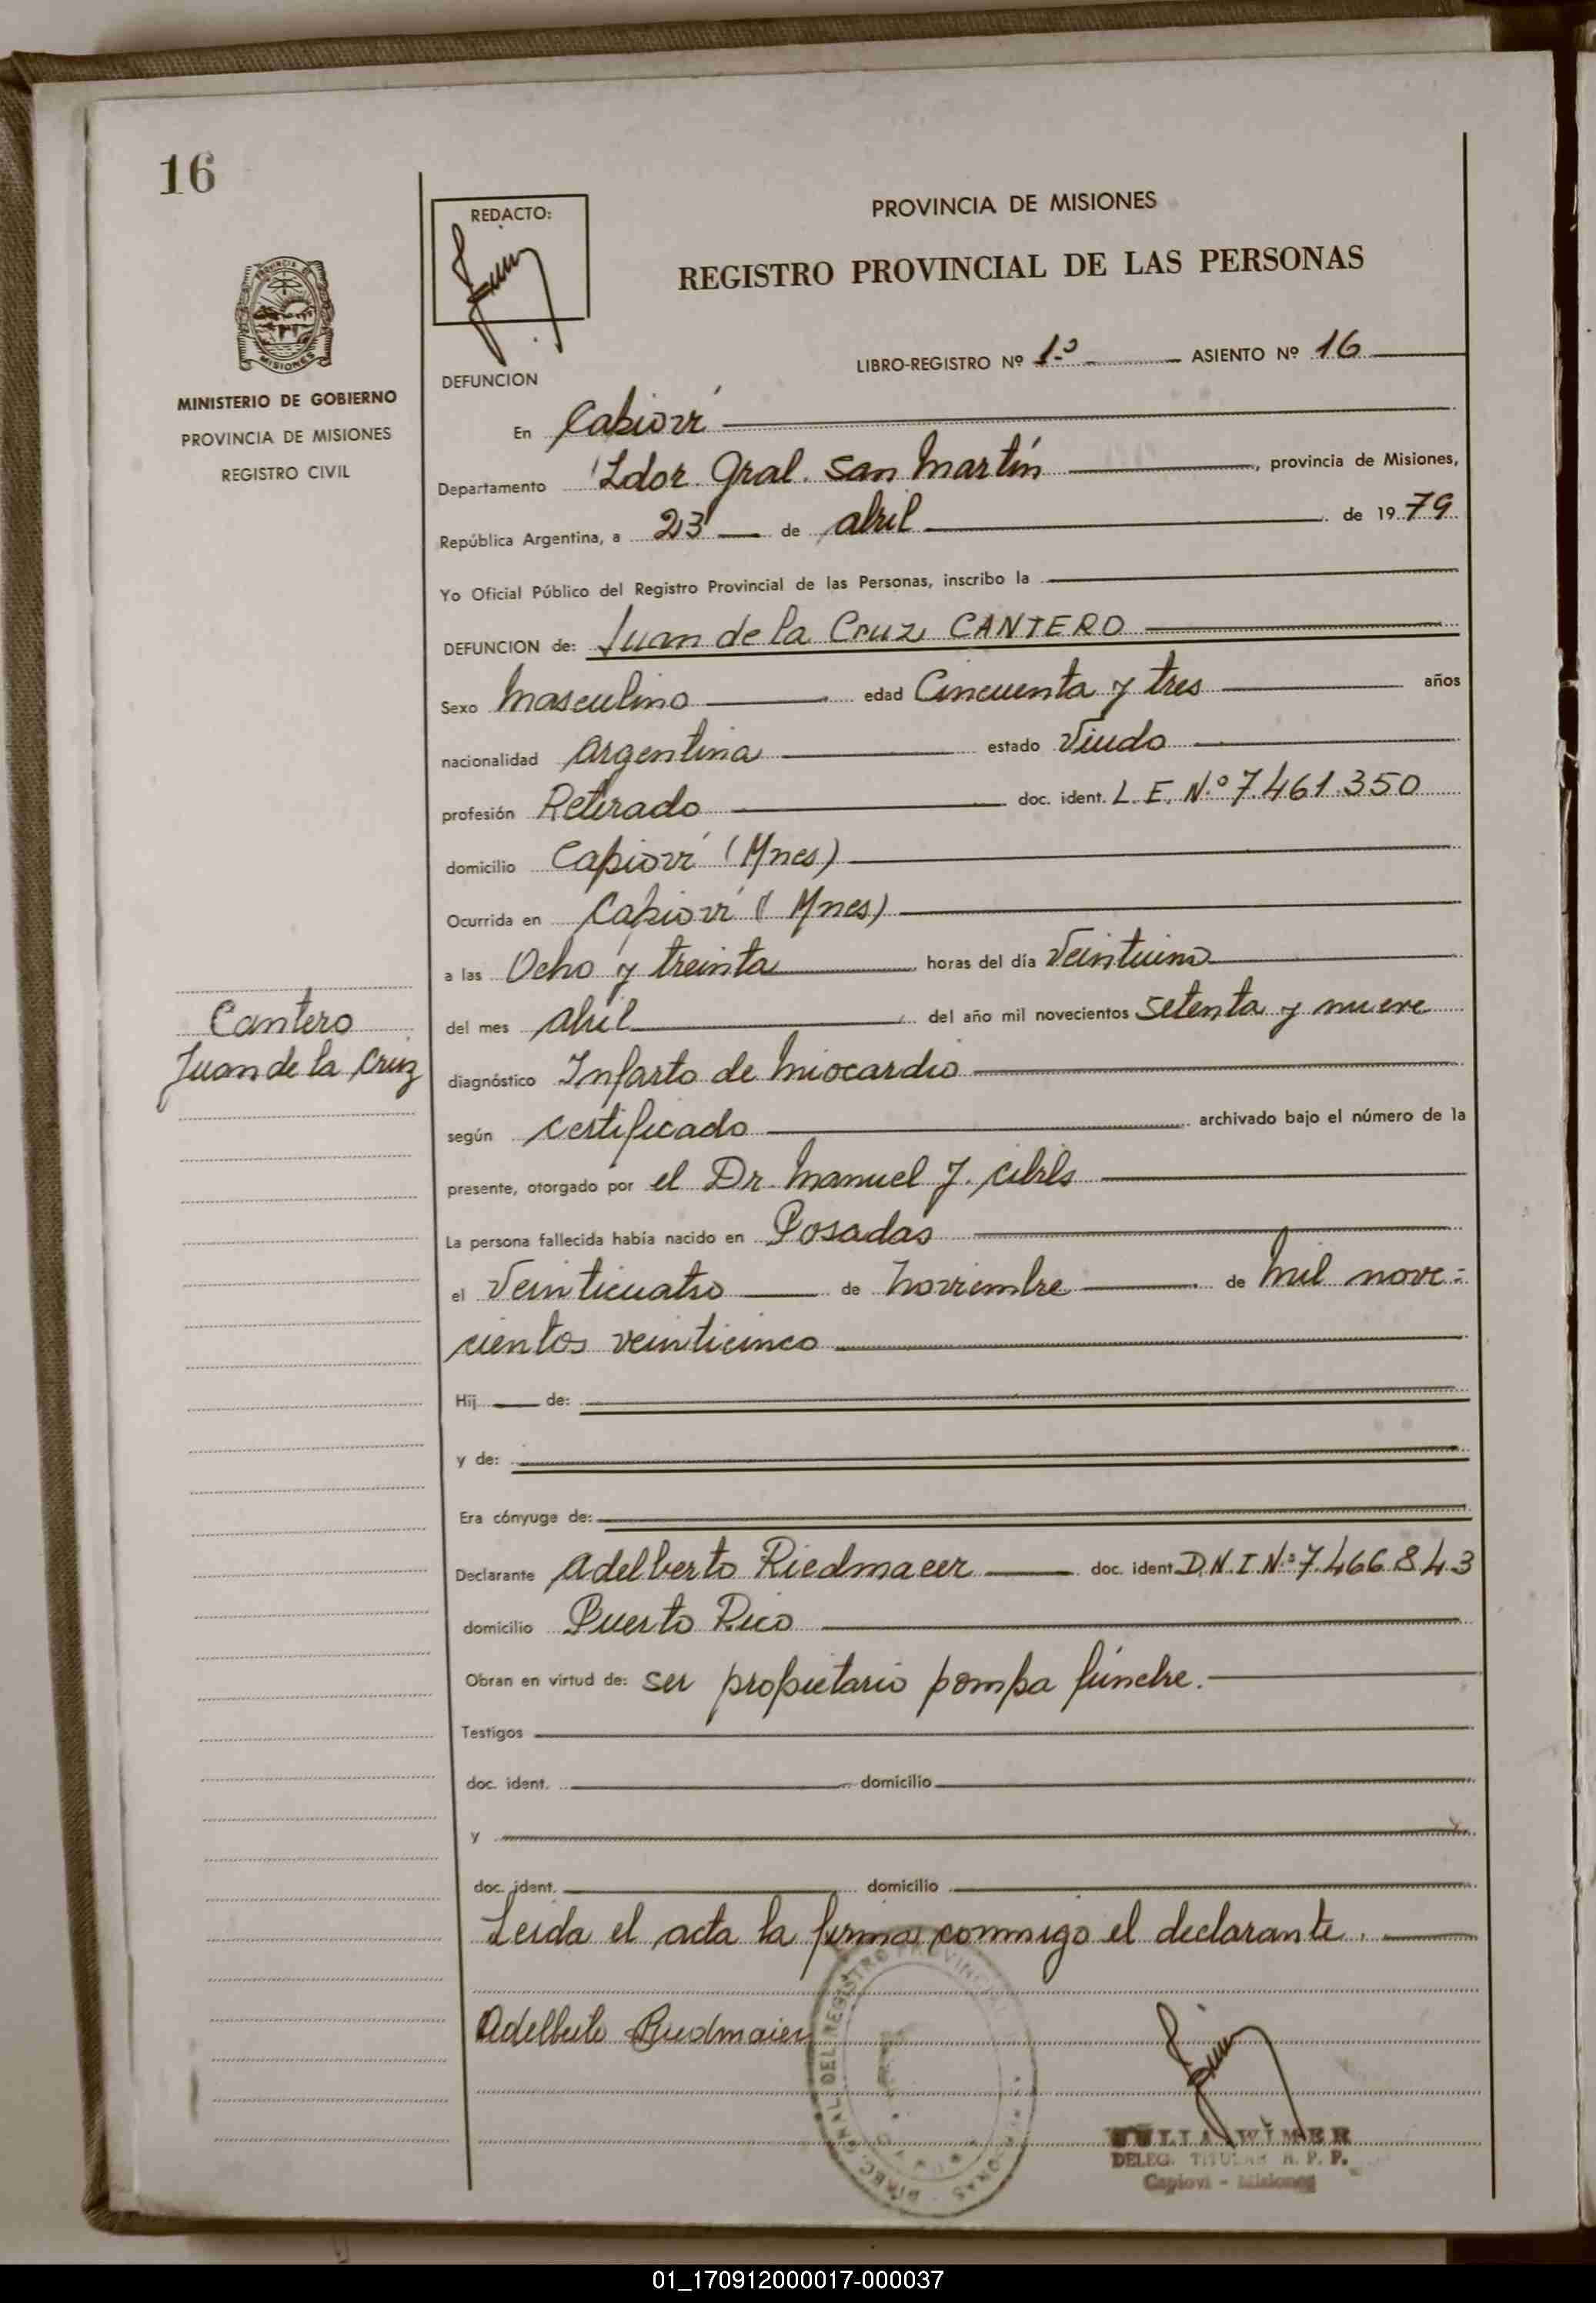 16
REDACTO:
PROVINCIA DE MISIONES
REGISTRO PROVINCIAL DE LAS PERSONAS
PROVINCIA DE
MISIONES
MINISTERIO DE GOBIERNO
PROVINCIA DE MISIONES
REGISTRO CIVIL
LIBRO-REGISTRO Nº 1º ASIENTO Nº 16
DEFUNCION
En Capioví
Departamento Ldor. Gral. San Martín, provincia de Misiones,
República Argentina, a 23 de abril de 1979
Yo Oficial Público del Registro Provincial de las Personas, inscribo la
DEFUNCION de: Juan de la Cruz CANTERO
Sexo Masculino edad Cincuenta y tres años
nacionalidad Argentina estado Viudo
profesión Retirado doc. ident. L.E. N.º 7.461.350
domicilio Capioví (Mnes)
Ocurrida en Capioví (Mnes)
a las Ocho y treinta horas del día Veintiuno
del mes abril del año mil novecientos setenta y nueve
Cantero
Juan de la Cruz
diagnóstico Infarto de Miocardio
según certificado archivado bajo el número de la
presente, otorgado por el Dr. Manuel J.
La persona fallecida había nacido en Posadas
el Veinticuatro de Noviembre de Mil nove-
cientos veinticinco
Hij de:
y de:
Era cónyuge de:
Declarante Adelberto Riedmaeer doc. ident D.N.I. N.º 7.466.843
domicilio Puerto Rico
Obran en virtud de: ser propietario pompa fúnebre.
Testigos
doc. ident. domicilio
y
doc. ident. domicilio
Leida el acta la firma conmigo el declarante.
Adelberto Riedmaier
WIMER
DELEG. TITULAR R. P. P.
Capiovi - Misiones
01_170912000017-000037